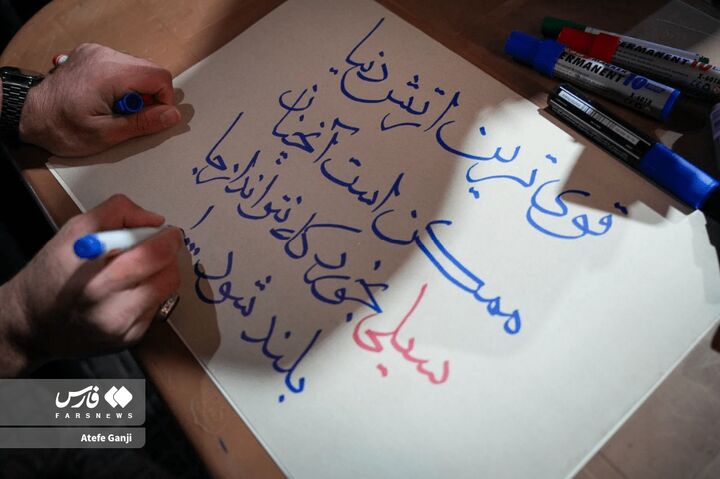 قوی‌ترین ارتش دنیا
ممکن است آنچنان
سیلی بخورد که نتواند از جا
بلند شود...!
PERMANENT
PERMANENT
فارس
FARSNEWS
Atefe Ganji